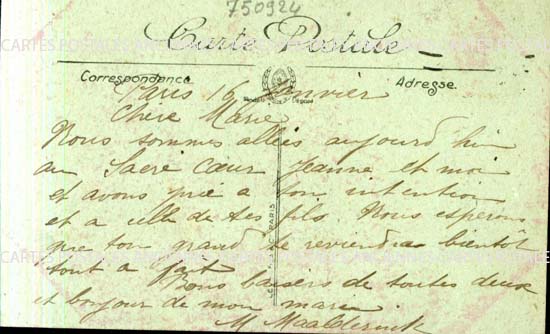 750924
Carte Postale
Correspondance
Adresse.
Paris 16 Janvier
Chère Marie
Nous sommes allées aujourd'hui
au Sacré Cœur Jeanne et moi
et avons prié a ton intention
et a celle de tes fils. Nous esperons
que ton grand te reviendra bientôt
tout a fait
Bons baisers de toutes deux
et bonjour de mon mari
M